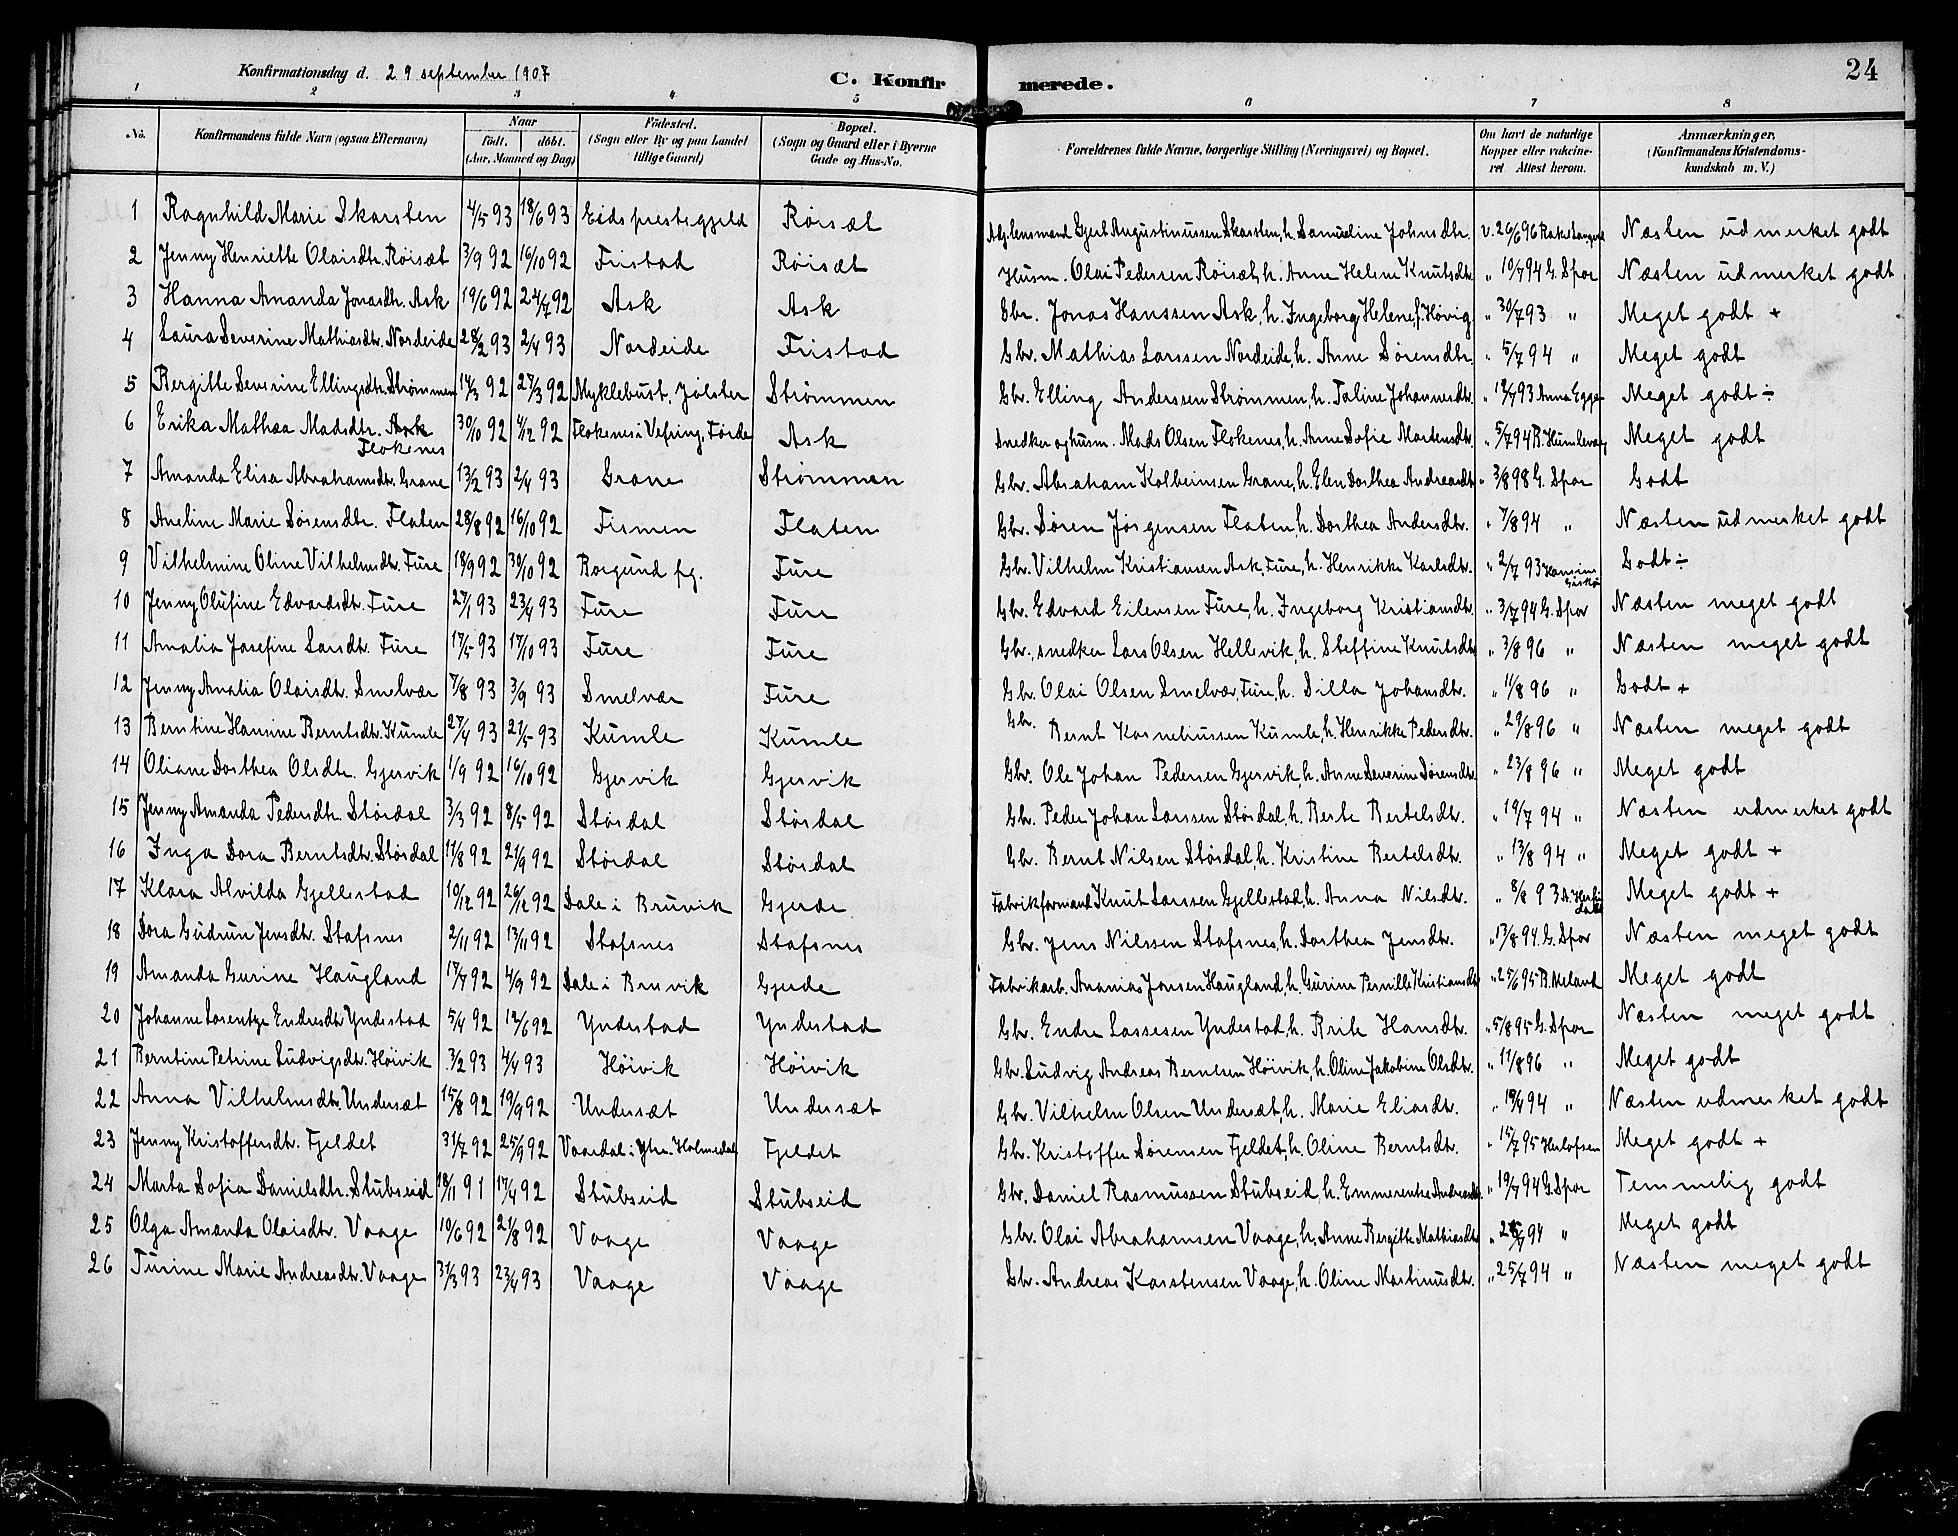 Konfirmationsdag d. 29 september 1907
C. Konfirmerede.
24
1 2 3 4 5 6 7 8
No.
Konfirmandens fulde Navn (ogsaa Efternavn)
Naar
født. døbt.
(Aar, Maaned og Dag)
Fødested.
(Sogn eller By og paa Landet
tillige Gaard)
Bopæl.
(Sogn og Gaard eller i Byerne
Gade og Hus-No.
Forældrenes fulde Navne, borgerlige Stilling (Næringsvei) og Bopæl.
Om havt de naturlige
Kopper eller vakcine-
ret Attest herom.
Anmærkninger.
(Konfirmandens Kristendoms-
kundskab m. V.)
1 Ragnhild Marie Skarsten 4/5 93 18/6 93 Eids prestegjeld Røisæt Gjert Augustinussen Skarsten, h. Samueline Johnsdtr. v. 26/6 96 Næsten udmerket godt
2 Jenny Henriette Olaisdtr. Røisæt 3/9 92 16/10 92 Fristad Røisæt Husm. Olai Pedersen Røisæt, h. Anne Helene Knutsdtr. " 10/7 94 G. Spor Næsten udmerket godt
3 Hanna Amanda Jonasdtr. Ask 19/6 92 24/7 92 Ask Ask Gbr. Jonas Hanssen Ask, h. Ingeborg Helene f. Høvig " 30/7 93 " Meget godt +
4 Laura Severine Mathiasdtr. Nordeide 28/2 93 2/4 93 Nordeide Fristad Gbr. Mathias Larssen Nordeide, h. Anne Sørensdtr. " 5/7 94 " Meget godt
5 Bergitte Severine Ellingsdtr. Strømmen 14/3 92 27/3 92 Myklebust, Jølster Strømmen Gbr. Elling Anderssen Strømmen, h. Taline Johannesdtr. " Anna Egge Meget godt ÷
6 Erika Mathea Madsdtr. Ask 30/10 92 4/12 92 Flokenes i Vefring, Førde Ask Snedker og husm. Mads Olsen Flokenes, h. Anne Sofie Mortensdtr. " 5/7 94 Meget godt
Flokenes
7 Amanda Elisa Abrahamsdtr. Grane 13/2 93 2/4 93 Grane Strømmen Gbr. Abraham Kolbeinsen Grane, h. Elen Dorthea Andreasdtr. " 3/8 98 G. Spor Godt
8 Aneline Marie Sørensdtr. Flaten 28/8 92 16/10 92 Firmen Flaten Gbr. Søren Jørgensen Flaten, h. Dorthea Andersdtr. " 7/8 94 " Næsten udmerket godt
9 Vilhelmine Oline Vilhelmsdtr. Fure 18/9 92 30/10 92 Borgund pg. Fure Gbr. Vilhelm Kristiansen Ask, Fure, h. Henrikke Karlsdtr. " 2/7 93 Godt ÷
10 Jenny Olufine Edvardsdtr. Fure 27/1 93 23/4 93 Fure Fure Gbr. Edvard Eilertsen Fure, h. Ingeborg Kristiansdtr. " 3/7 94 G. Spor Næsten meget godt
11 Amalia Josefine Larsdtr. Fure 17/5 93 17/10 93 Fure Fure Gbr., snedker Lars Olsen Hellevik, h. Steffine Knutsdtr. " 3/8 96 " Næsten meget godt
12 Jenny Amalia Olaisdtr. Smelvær 7/8 93 3/9 93 Smelvær Fure Gbr. Olai Olsen Smelvær, Fure, h. Silla Johansdtr. " 11/8 96 " Godt +
13 Berntine Hansine Berntsdtr. Kumle 27/4 93 21/5 93 Kumle Kumle Gbr. Bernt Korneliussen Kumle, h. Henrikke Pedersdtr. " 29/8 96 " Næsten meget godt
14 Oliane Dorthea Olsdtr. Gjervik 1/9 92 16/10 92 Gjervik Gjervik Gbr. Ole Johan Pedersen Gjervik, h. Anne Severine Sørensdtr. " 23/8 96 " Meget godt
15 Jenny Amanda Pedersdtr. Størdal 3/3 92 8/5 92 Størdal Størdal Gbr. Peder Johan Larssen Størdal, h. Berte Bertelsdtr. " 19/7 94 " Næsten udmerket godt
16 Inga Dora Berntsdtr. Størdal 11/8 92 21/9 92 Størdal Størdal Gbr. Bernt Nilsen Størdal, h. Kristine Bertelsdtr. " 13/8 94 " Meget godt +
17 Klara Alvilda Gjellestad 10/12 92 26/12 92 Dale i Bruvik Gjerde Fabrikformand Knut Larssen Gjellestad, h. Anna Nilsdtr. " 8/8 93 Meget godt +
18 Dora Gudrun Jensdtr. Stafsnes 2/11 92 13/11 92 Stafsnes Stafsnes Gbr. Jens Nilssen Stafsnes, h. Dorthea Jensdtr. " 13/8 94 G. Spor Næsten meget godt
19 Amanda Gurine Haugland 17/7 92 4/9 92 Dale i Bruvik Gjerde Fabrikarb. Ananias Jonsen Haugland, h. Gurine Pernille Kristiansdtr. " 25/6 95 B. Meland Meget godt
20 Johanne Lorentze Endresdtr. Yndestad 5/4 92 12/6 92 Yndestad Yndestad Gbr. Endre Lassesen Yndestad, h. Brite Hansdtr. " 5/8 95 G. Spor Næsten meget godt
21 Berntine Petrine Ludvigsdtr. Høivik 3/2 93 4/4 93 Høivik Høivik Gbr. Ludvig Andreas Berntsen Høivik, h. Oline Jakobine Olsdtr. " 11/8 96 " Meget godt
22 Anna Vilhelmsdtr. Undersæt 15/8 92 19/9 92 Undersæt Undersæt Gbr. Vilhelm Olsen Undersæt, h. Marie Eliasdtr. " 94 " Næsten udmerket godt
23 Jenny Kristoffersdtr. Fjeldet 31/7 92 25/9 92 Vaardal i Ytre Holmedal Fjeldet Gbr. Kristoffer Sørensen Fjeldet, h. Oline Berntsdtr. " 15/7 95 Herlofsen Meget godt +
24 Marta Sofia Danielsdtr. Stubseid 18/11 91 17/4 92 Stubseid Stubseid Gbr. Daniel Rasmussen Stubseid, h. Emmerentze Andreasdtr. " 19/7 94 G. Spor Temmelig godt
25 Olga Amanda Olaisdtr. Vaage 10/6 92 21/8 92 Vaage Vaage Gbr. Olai Abrahamsen Vaage, h. Anne Bergitte Mathiasdtr. " 94 " Meget godt
26 Turine Marie Andreasdtr. Vaage 31/3 93 23/4 93 Vaage Vaage Gbr. Andreas Karstensen Vaage, h. Oline Martinusdtr. " 25/7 94 " Næsten meget godt